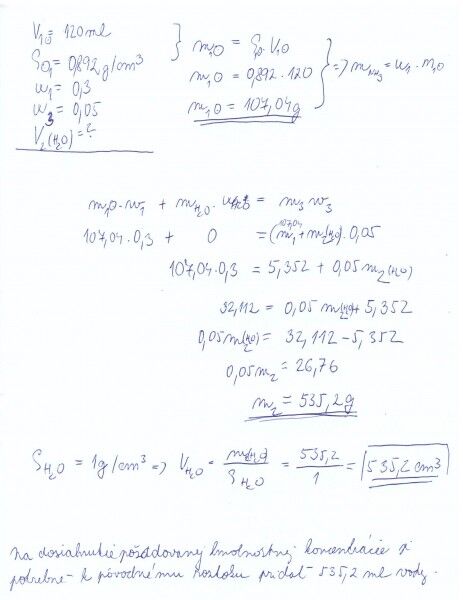 V₁₀ = 120 ml
ρ₀₁ = 0,892 g/cm³
w₁ = 0,3
w₃ = 0,05
V₂(H₂O) = ?
m₁₀ = ρ₀₁ · V₁₀
m₁₀ = 0,892 · 120
m₁₀ = 107,04 g
=> m_NH₃ = w₁ · m₁₀
m₁₀ · w₁ + m_H₂O · w_H₂O = m₃ w₃
107,04 · 0,3 + 0 = (m₁ + m₂(H₂O)) · 0,05
107,04
107,04 · 0,3 = 5,352 + 0,05 m₂(H₂O)
32,112 = 0,05 m(H₂O) + 5,352
0,05 m(H₂O) = 32,112 - 5,352
0,05 m₂ = 26,76
m₂ = 535,2 g
ρ_H₂O = 1g/cm³ => V_H₂O = m(H₂O)/ρ_H₂O = 535,2/1 = 535,2 cm³
na dosiahnutie požadovanej hmotnostnej koncentrácie je
potrebné k pôvodnému roztoku pridať 535,2 ml vody.